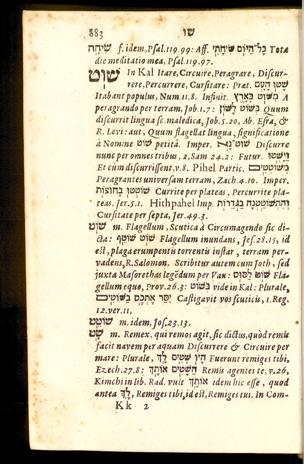 883 שו
שִׂיחָה f. idem, Psal. 119.99: Aff. כָּל־הַיּוֹם שִׂיחָתִי Tota
die meditatio mea, Psal. 119.97.
שׁוּט In Kal Itare, Circuire, Peragrare, Discur-
rere, Percurrere, Cursitare: Præt. שָׁטוּ הָעָם
Itabant populus, Num. 11.8. Infinit. מִשּׁוּט בָּאָרֶץ A
peragrando per terram, Job. 1.7: בְּשׁוֹט לָשׁוֹן Quum
discurrit lingua sc. maledica, Job. 5.20. Ab. Esra, &
R. Levi: aut, Quum flagellat lingua, significatione
à Nomine שׁוֹט petitâ. Imper. שׁוּט־נָא Discurre
nunc per omnes tribus, 2 Sam. 24.2: Futur. וַיָּשֻׁטוּ
Et cùm discurrissent, v. 8. Pihel Partic. מְשׁוֹטְטִים
Peragrantes universam terram, Zach. 4.10. Imper.
שׁוֹטְטוּ בְּחוּצוֹת Currite per plateas, Percurrite pla-
teas, Jer. 5.1. Hithpahel Imp. וְהִתְשׁוֹטַטְנָה בַּגְּדֵרוֹת
Cursitate per septa, Jer. 49.3.
שׁוֹט m. Flagellum, Scutica à Circumagendo sic di-
cta: שׁוֹט שׁוֹטֵף Flagellum inundans, Jes. 28.15, id
est, plaga erumpenti torrentis instar, terram per-
vadens, R. Salomon. Scribitur autem cum Jod, sed
juxta Masorethas legẽdum per Vau: שׁוֹט לַסּוּס Fla-
gellum equo, Prov. 26.3: בְּשׁוֹט vide in Kal: Plurale,
יִסַּר אֶתְכֶם בַּשּׁוֹטִים Castigavit vos scuticis, 1. Reg.
12. ver. 11.
שׁוֹטֵט m. idem, Jos. 23.13.
שָׁט m. Remex, qui remos agit, sic dictus, quòd remis
facit navem per aquam Discurrere & Circuire per
mare: Plurale, הָיוּ שָׁטִים לָךְ Fuerunt remiges tibi,
Ezech. 27.8: אוֹתָךְ הַשָּׁטִים Remis agentes te, v. 26,
Kimchi in lib. Rad. vult אוֹתָךְ idem hîc esse, quod
antea לָךְ, Remiges tibi, id est, Remiges tui. In Com-
Kk 2